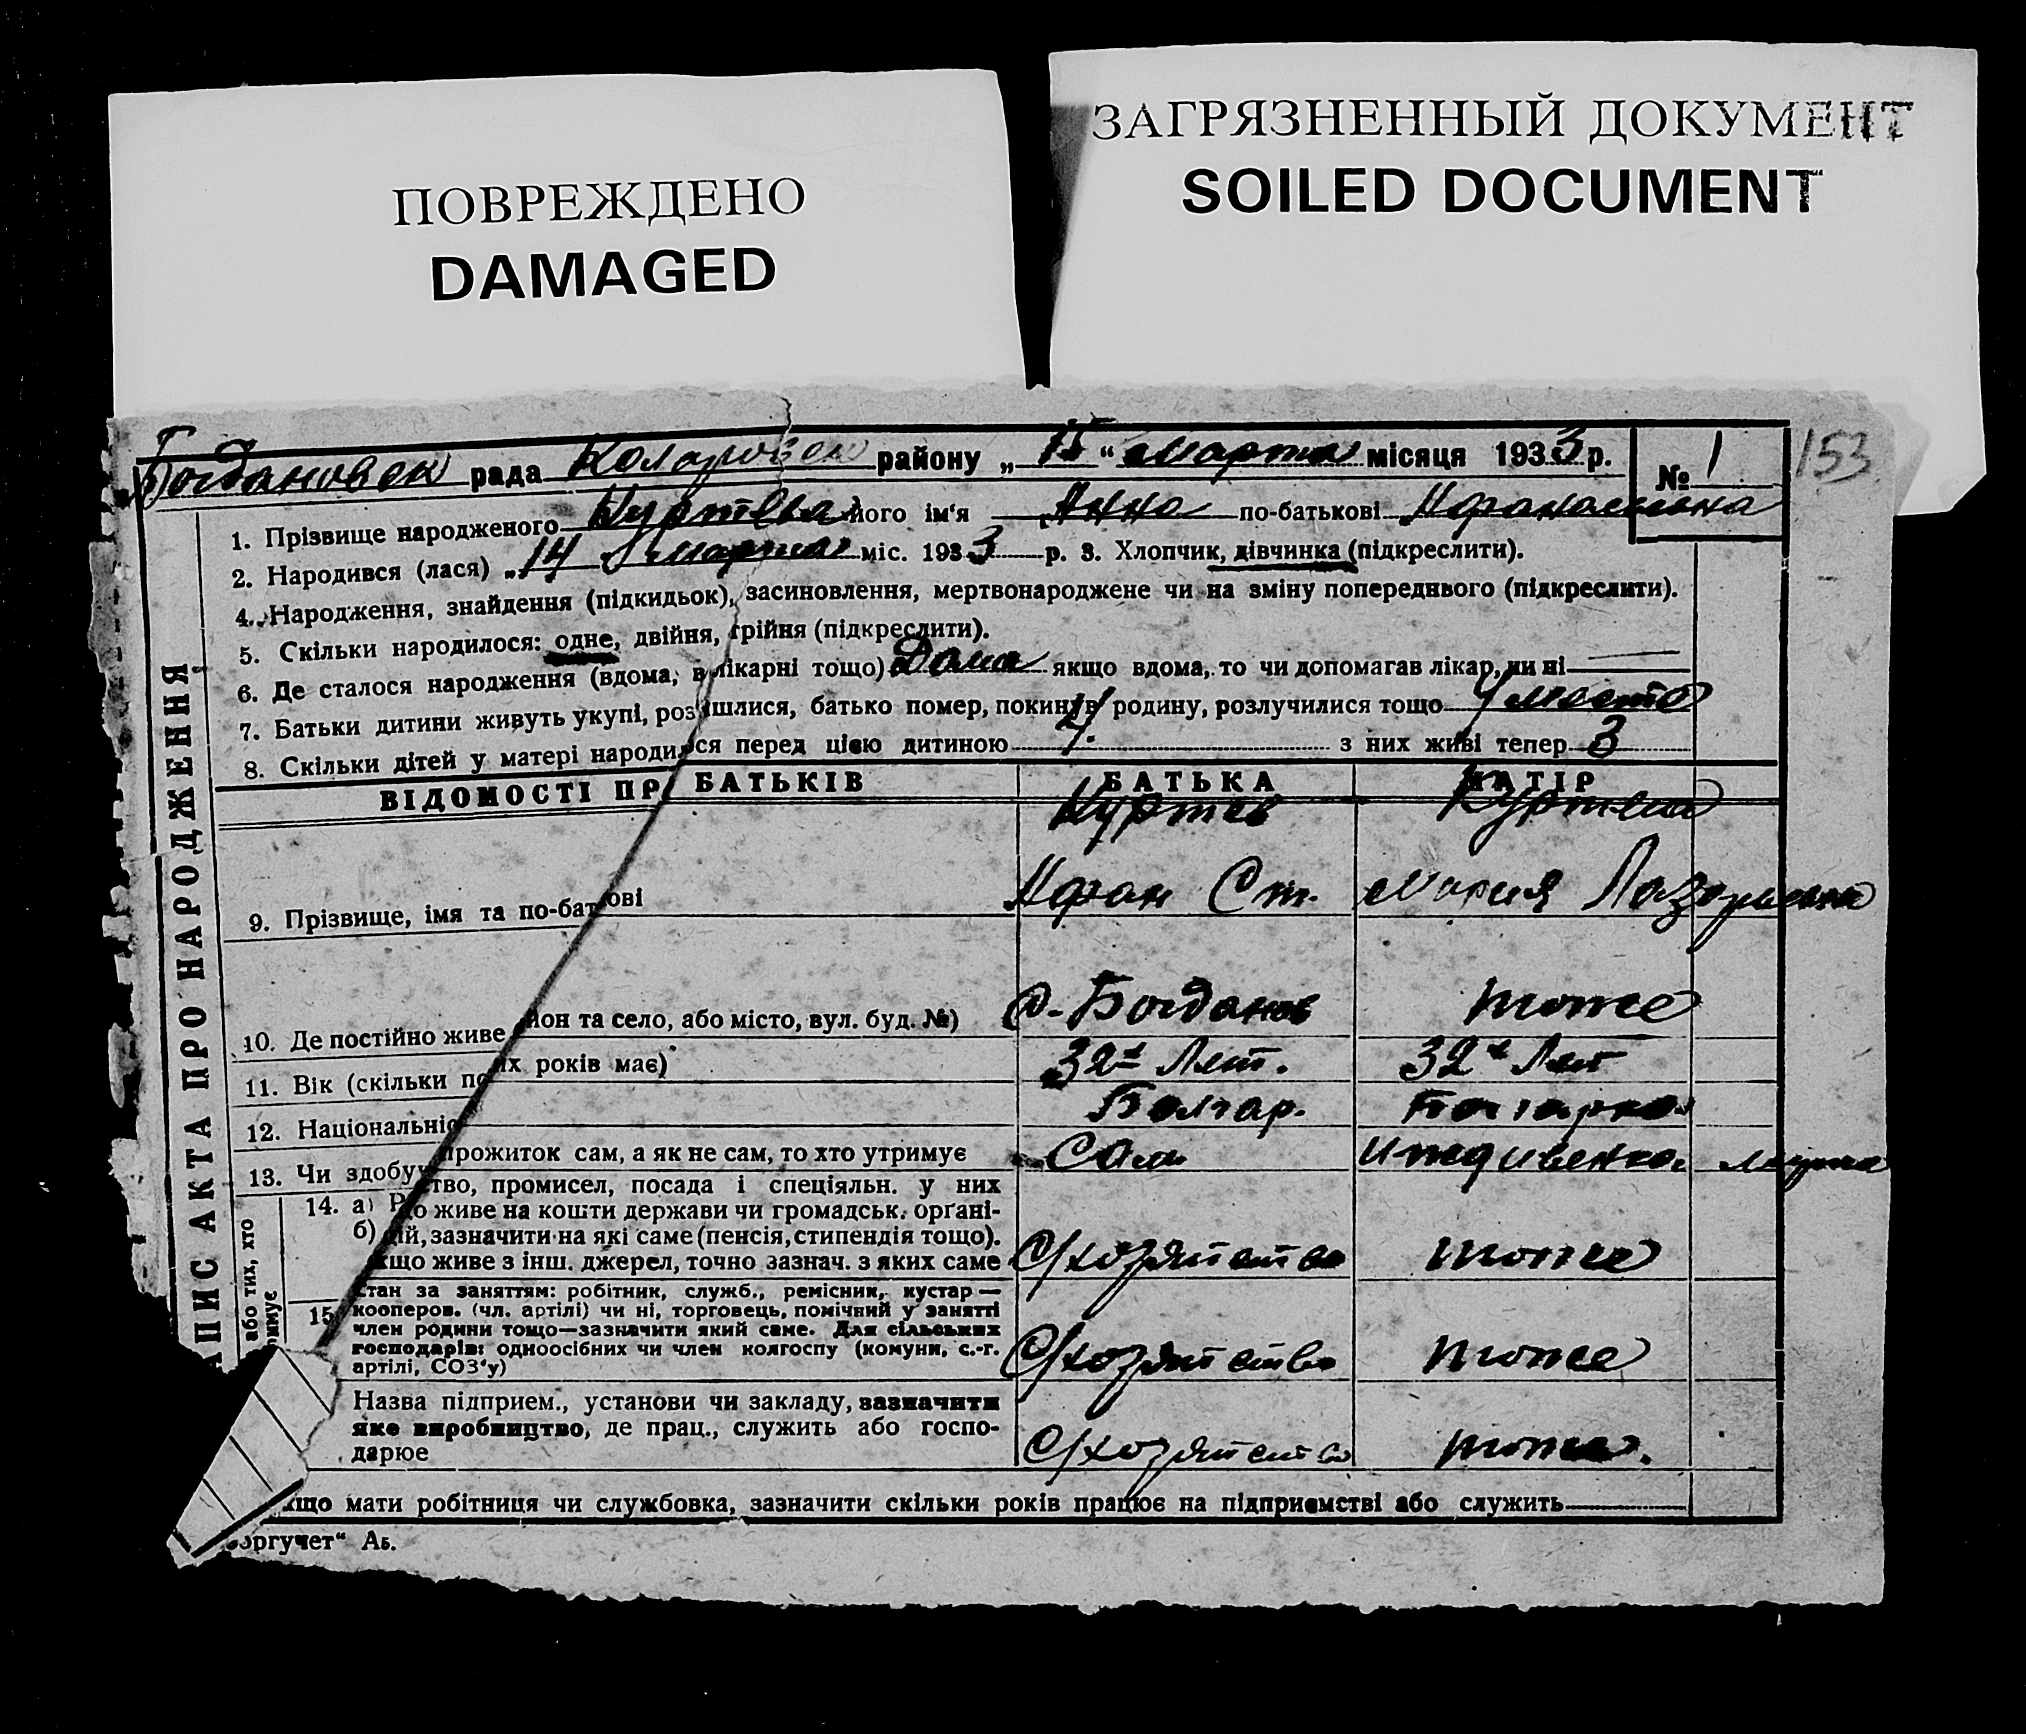 ПОВРЕЖДЕНО
DAMAGED
ЗАГРЯЗНЕННЫЙ ДОКУМЕНТ
SOILED DOCUMENT
Богдановск рада Коларовск району „ 15 “ марта місяця 1933 р. № 1 153
1. Прізвище народженого Куртева його ім'я Анна по-батькові Афанасиевна
2. Народився (лася) „ 14 марта міс. 1933 р. 3. Хлопчик, дівчинка (підкреслити).
4. Народження, знайдення (підкидьок), засиновлення, мертвонароджене чи на зміну попереднього (підкреслити).
5. Скільки народилося: одне, двійня, трійня (підкреслити).
6. Де сталося народження (вдома, в лікарні тощо) Дома якщо вдома, то чи допомагав лікар, чи ні
7. Батьки дитини живуть укупі, розійшлися, батько помер, покинув родину, розлучилися тощо
8. Скільки дітей у матері народилося перед цією дитиною 7. з них живі тепер 3
ЗАПИС АКТА ПРО НАРОДЖЕННЯ
ВІДОМОСТІ ПР БАТЬКІВ БАТЬКА МАТІР
Куртев Куртева
9. Прізвище, імя та по-батькові Афан Ст. Мария Лазаровна
10. Де постійно живе йон та село, або місто, вул. буд. №) с. Богданов тоже
11. Вік (скільки по их років має) 32 Лет. 32 Лет
12. Національніс Болгар. Болгарка
13. Чи здобу прожиток сам, а як не сам, то хто утримує Сам Иждивенка мужа
або тих, хто
римує
14. а) Р тво, промисел, посада і спеціяльн. у них
б) о живе на кошти держави чи громадськ. органі-
ій, зазначити на які саме (пенсія, стипендія тощо).
кщо живе з інш. джерел, точно зазнач. з яких саме С/хозяйство тоже
15 стан за заняттям: робітник, служб., ремісник, кустар—
кооперов. (чл. артілі) чи ні, торговець, помічний у занятті
член родини тощо—зазначити який саме. Для сільських
господарів: одноосібних чи член колгоспу (комуни, с.-г.
артілі, СОЗ'у) С/хозяйство тоже
Назва підприєм., установи чи закладу, зазначити
яке виробництво, де прац., служить або госпо-
дарює С/хозяйство тоже.
кщо мати робітниця чи службовка, зазначити скільки років працює на підприємстві або служить
оргучет“ Аб.